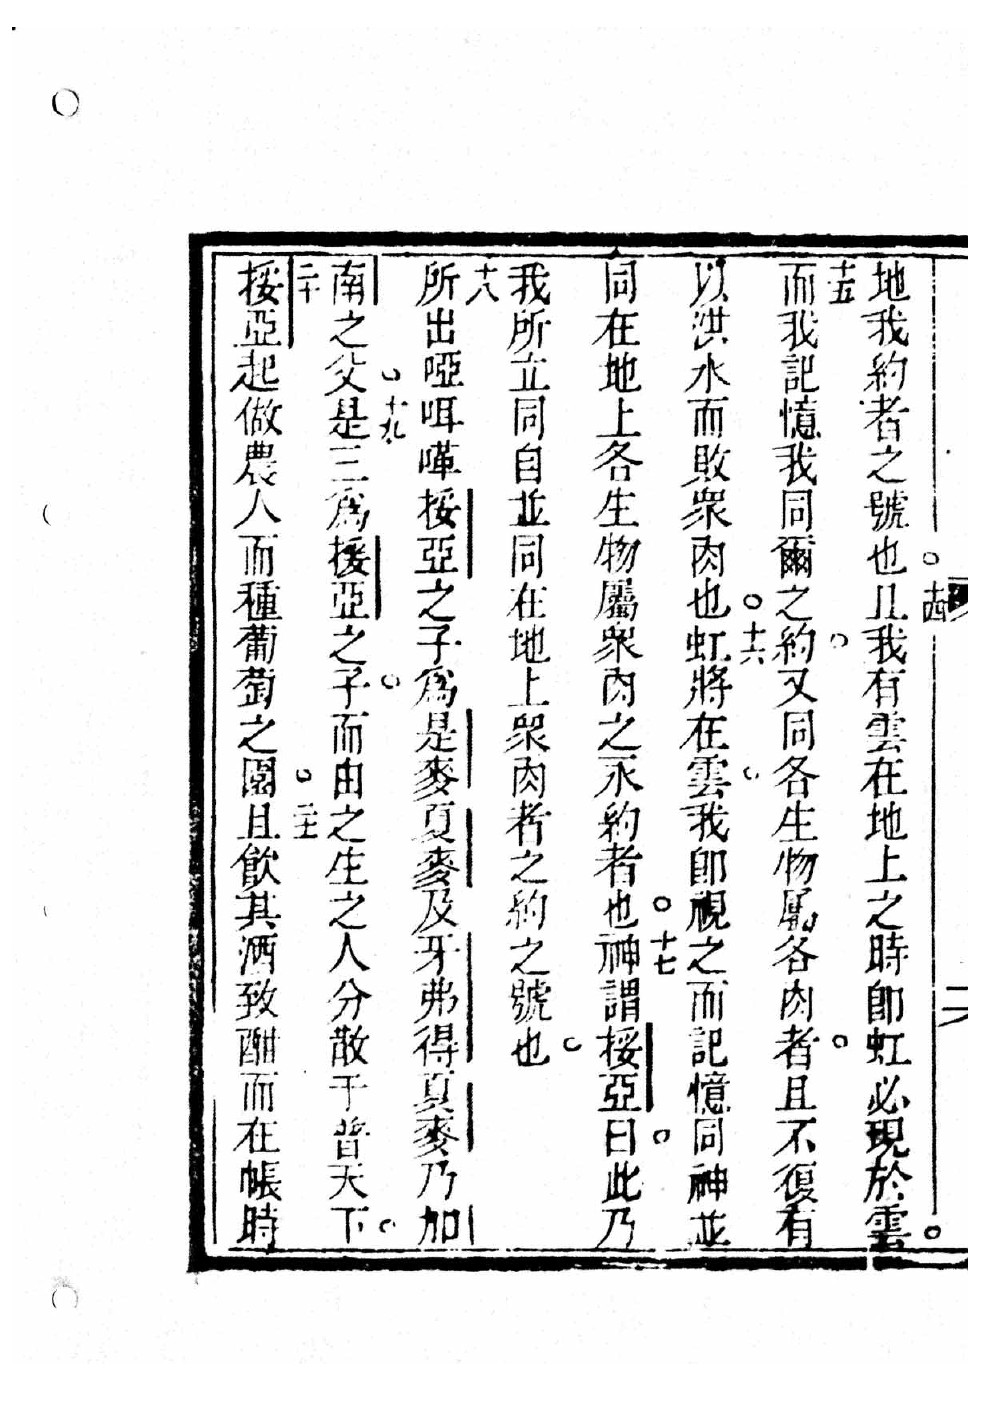 地我約者之號也○十四且我有雲在地上之時卽虹必現於雲○
十五而我記憶我同爾之約○又同各生物屬各肉者○且不復有
以洪水而敗衆肉也○十六虹將在雲○我卽視之而記憶同神並
同在地上各生物屬衆肉之永約者也○十七神謂挼亞曰○此乃
我所立同自並同在地上衆肉者之約之號也○
十八所出啞咡嘩挼亞之子爲是麥夏麥及牙弗得夏麥乃加
南之父○十九是三爲挼亞之子○而由之生之人分散于普天下○
二十挼亞起做農人而種葡萄之園○二十一且飮其酒致酣而在帳時